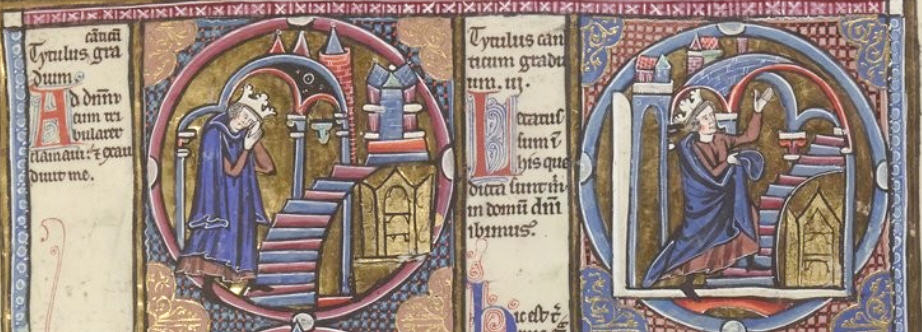 cãticũ
Tytulus gra
duum.
Ad dominũ
cum tri
bularer
clamaui: ⁊ exau
diuit me.
Tytulus can
ticum gradu
um. iii.
Letatus
sum ĩ
his que
dicta sunt m̃
in domũ dñi
ibimus.